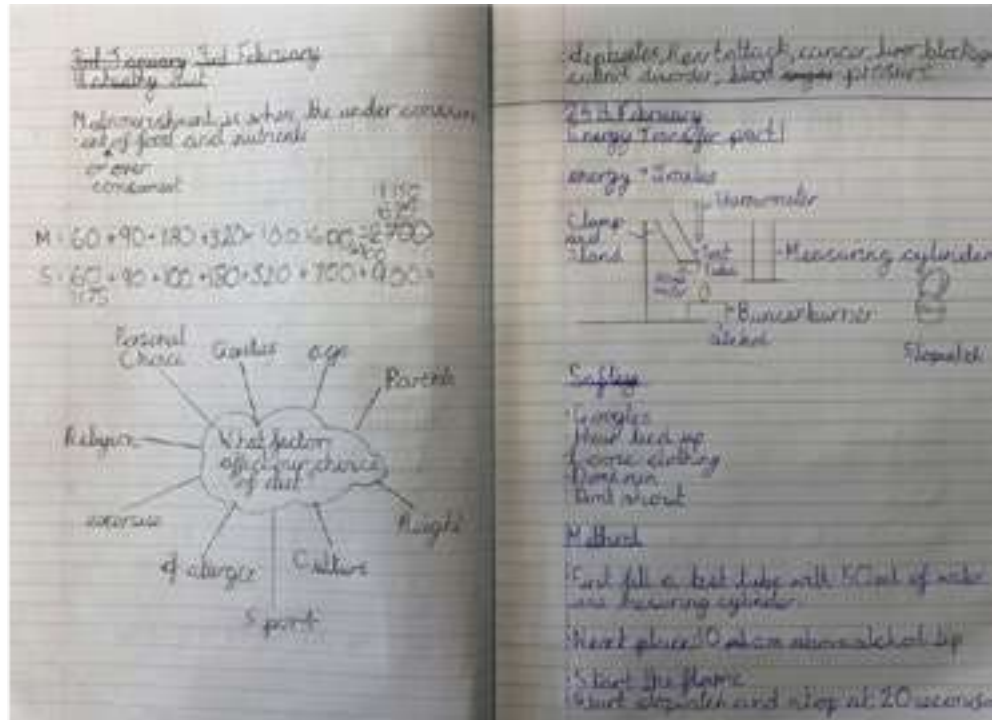 3rd January 3rd February
Malnourishment is when the under consum
ent of food and nutrients
or over
consument
M = 60 + 90 + 180 + 320 + 100 600 = 2700
S = 60 + 90 + 100 + 180 + 320 + 700 + 900 =
Personal
Choice
age
Parents
Religion
What factors
affect our choice
of diet
exercise
Height
Culture
Sport
heart attack, cancer, liver blockage
disorder, blood pressure
25th February
Energy Transfer part 1
energy = Joules
thermometer
Clamp
and
Stand
test
tube
Measuring cylinder
Buncer burner
alcohol
Stopwatch
Saftey
Goggles
Hair tied up
Loose clothing
Dont run
Dont shout
Method
First fill a test tube with 50ml of water
measuring cylinder
Next place 10 above alcohol
Start the flame
Start stopwatch and stop at 20 seconds